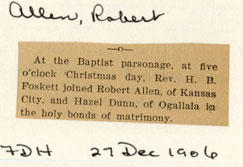 Allen, Robert
At the Baptist parsonage, at five
o'clock Christmas day, Rev. H. B.
Foskett joined Robert Allen, of Kansas
City, and Hazel Dunn, of Ogallala in
the holy bonds of matrimony.
7DH 27 Dec 1906